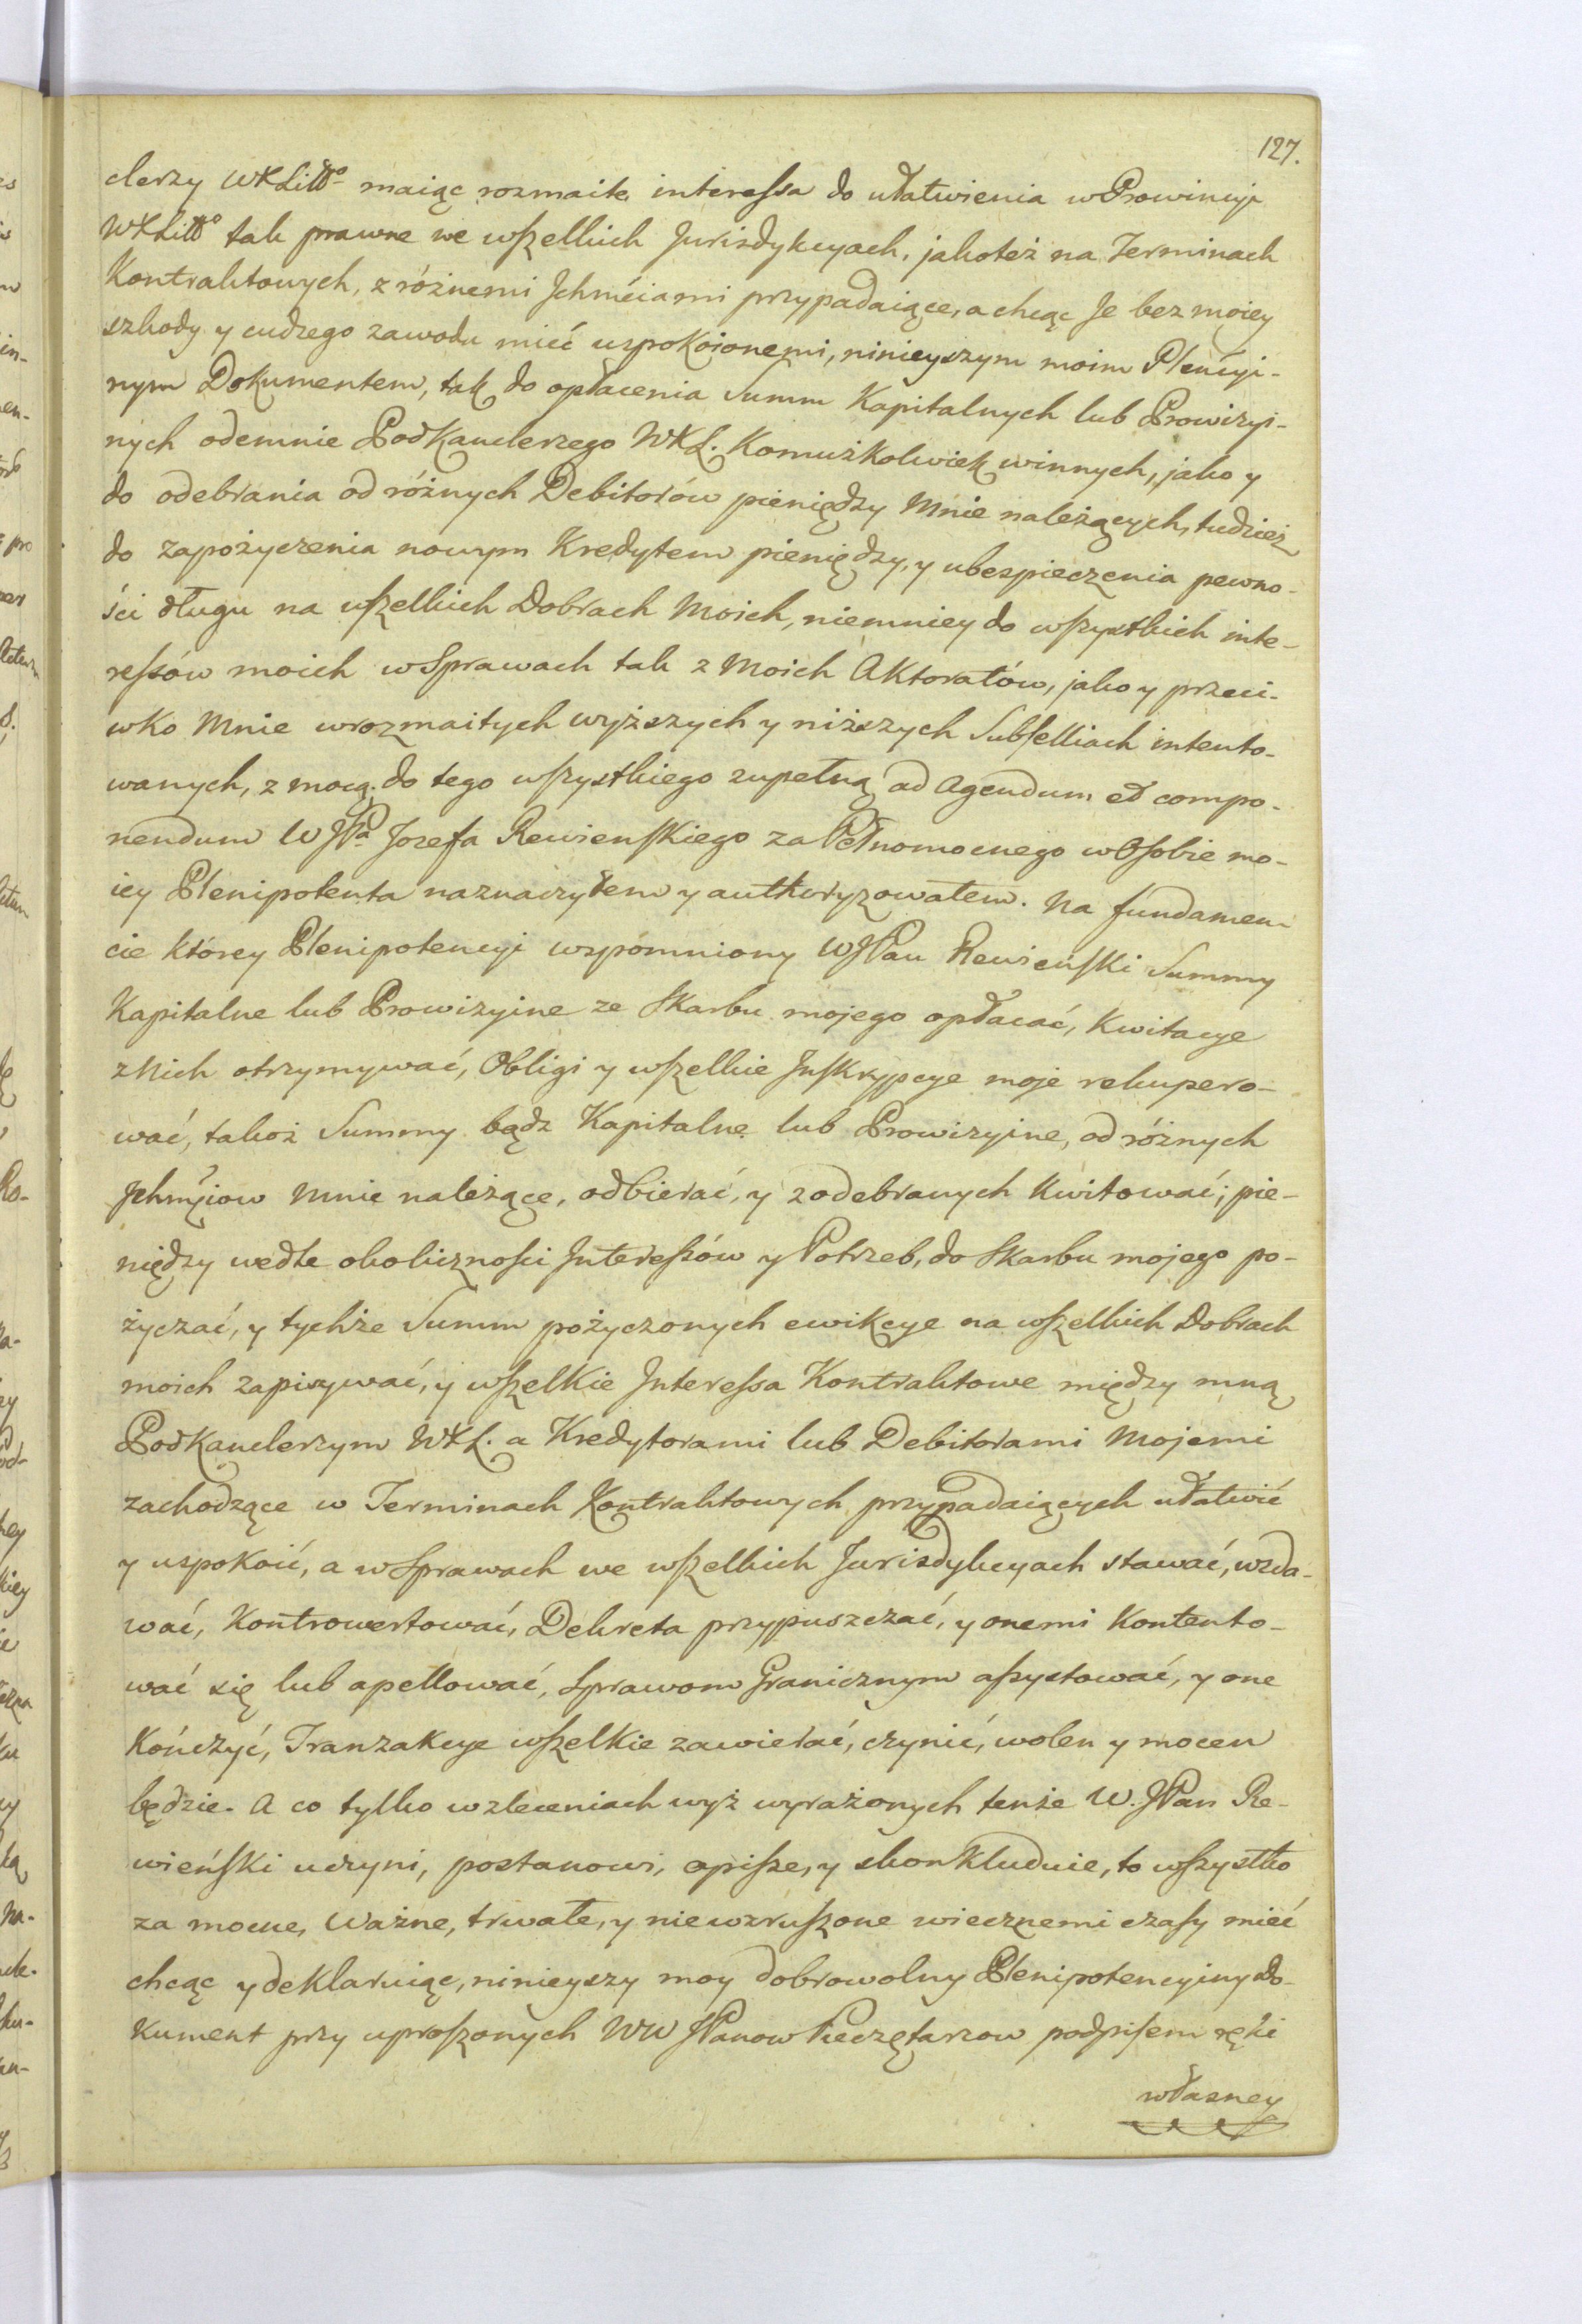 127.
clerzy WXLitt⁰ maiąc rozmaite interessa do ułatwienia w Prowincyi
WXLitt⁰ tak prawne we wszelkich Jurisdykcyach, jakoteż na Terminach
Kontraktowych, z różnemi Jchmściami przypadaiące, a chcąc Je bez moiey
szkody y cudzego zawodu mieć uspokoionemi, ninieyszym moim Plencyi-
nym Dokumentem, tak do opłacenia Summ Kapitalnych lub Prowizyi-
nych odemnie Podkanclerzego WXL. Komużkolwiek winnych, jako y
do odebrania od różnych Debitorów pieniędzy Mnie należących, tudzież
do zapożyczenia nowym Kredytem pieniędzy, y ubespieczenia pewno-
ści długu na wszelkich Dobrach Moich, niemniey do wszystkich inte-
ressów moich w Sprawach tak z Moich Aktoratów, jako y przeci-
wko Mnie w rozmaitych wyższych y niższych Subselliach intento-
wanych, z mocą do tego wszystkiego zupełną ad Agendum et compo-
nendum WJPa Jozefa Rewienskiego za Pełnomocnego w Osobie mo-
iey Plenipotenta naznaczyłem y authoryzowałem. Na fundamen-
cie którey Plenipotencyi wspomniony WJPan Rewieński Summy
Kapitalne lub Prowizyine ze Skarbu mojego opłacać, Kwitacye
z Nich otrzymywać, Obligi y wszelkie Inskrypcye moje rekupero-
wać, takoż Summy bądz Kapitalne lub Prowizyine, od różnych
Jchmściow Mnie należące, odbierać, y z odebranych Kwitować; pie-
niędzy wedle okoliczności Interessów y Potrzeb, do Skarbu mojego po-
życzać, y tychże Summ pożyczonych ewikcye na wszelkich Dobrach
moich zapisywać, y wszelkie Interessa Kontraktowe między mną
Podkanclerzym WXL. a Kredytorami lub Debitorami Mojemi
zachodzące w Terminach Kontraktowych przypadaiących ułatwić
y uspokoić, a w Sprawach we wszelkich Jurisdykcyach stawać, wzda-
wać, Kontrowertować, Dekreta przypuszczać, y onemi Kontento-
wać się lub apellować, Sprawom Granicznym assystować, y one
Kończyć, Tranzakcye wszelkie zawierać, czynić, wolen y mocen
będzie. A co tylko w zleceniach wyż wyrażonych tenże W. JPan Re-
wieński uczyni, postanowi, opisze, y skonkluduie, to wszystko
za mocne, Ważne, trwałe, y niewzruszone wiecznemi czasy mieć
chcąc y deklaruiąc, ninieyszy moy dobrowolny Plenipotencyiny Do-
kument przy uproszonych WW JPanow Pieczętarzow podpisem ręki
własney